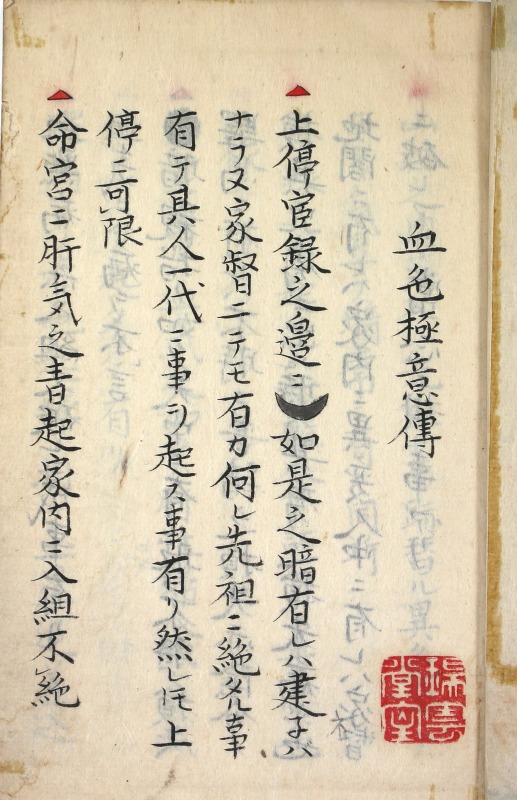 血色極意傳
上停官録之邉ニ如是之暗有レハ建子ハ
ナラヌ家督ニテモ有カ何レ先祖ニ絶タル事
有テ具人一代ニ事ヲ起ス事有リ然レ𪜈上
停ニ可限
命宮ニ肝気之青起家内ニ入組不絶